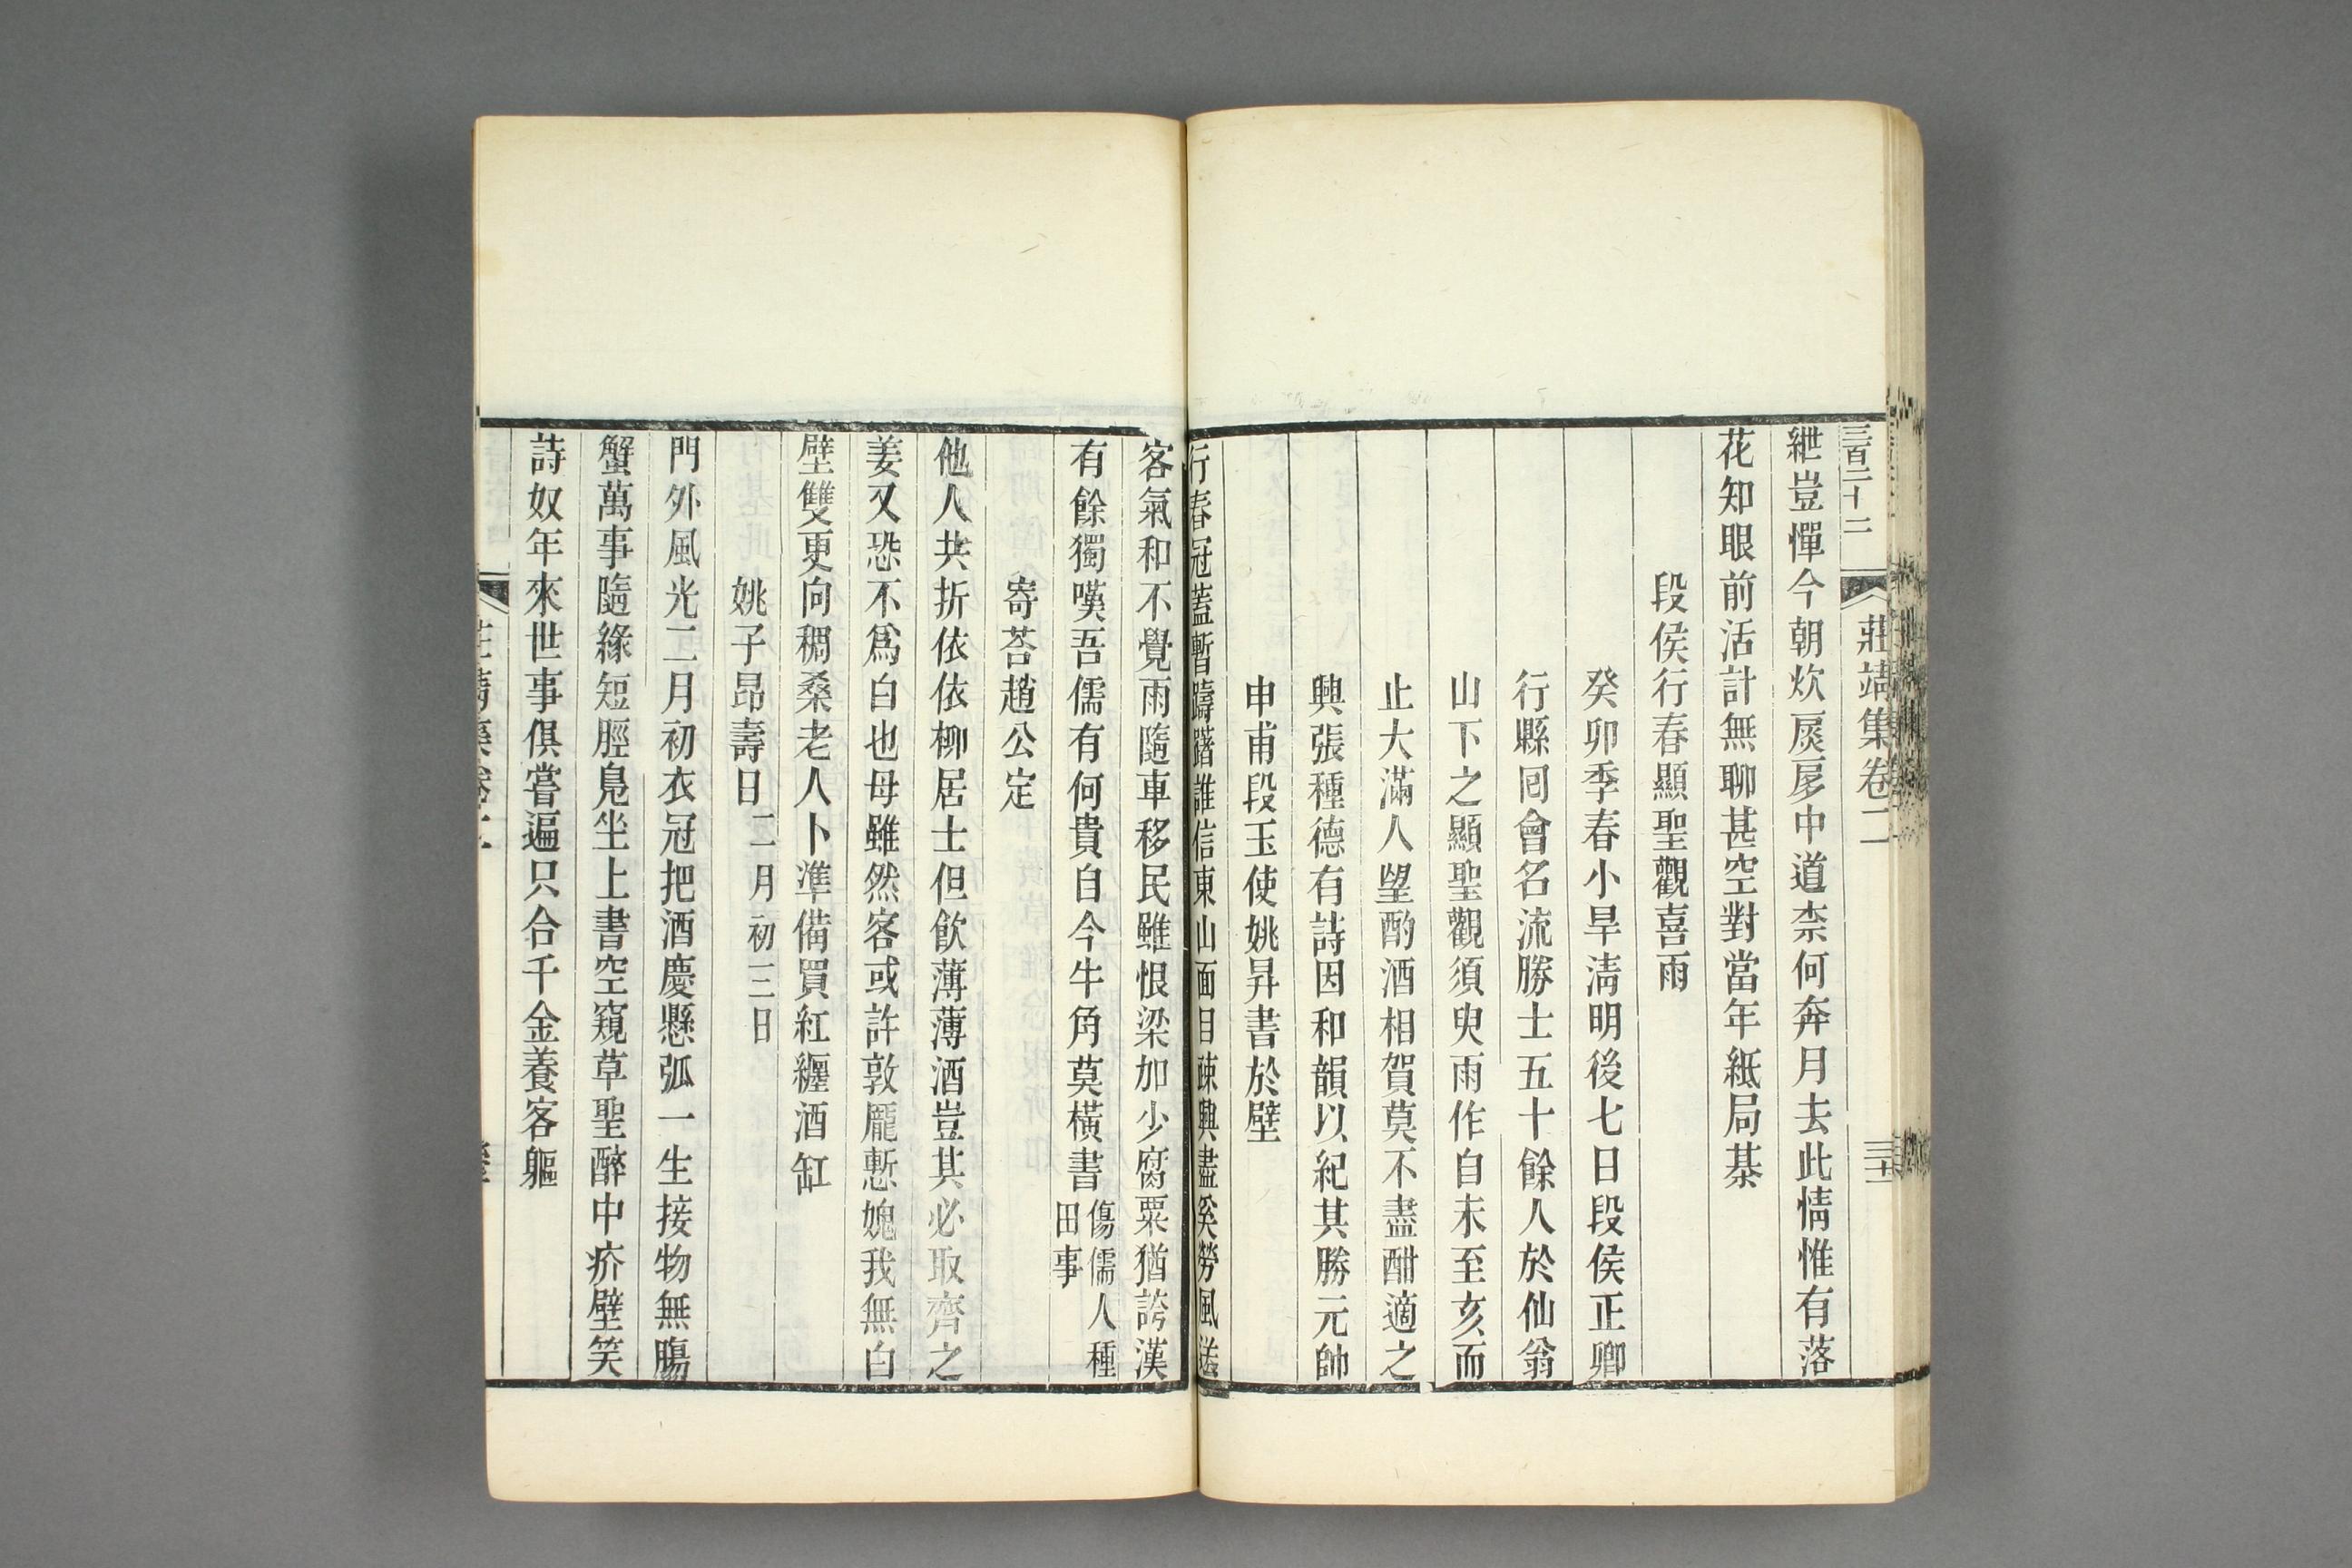 三百二十二
莊靖集卷二
三十二
紲豈憚今朝炊扊扅中道柰何奔月去此情惟有落
花知眼前活計無聊甚空對當年紙局棊
段侯行春顯聖觀喜雨
癸卯季春小旱淸明後七日段侯正卿
行縣囘會名流勝士五十餘人於仙翁
山下之顯聖觀須臾雨作自未至亥而
止大滿人望酌酒相賀莫不盡酣適之
興張種德有詩因和韻以紀其勝元帥
申甫段玉使姚昇書於壁
行春冠蓋暫躊躇誰信東山面目疎興盡奚勞風送
客氣和不覺雨隨車移民雖恨梁加少腐粟猶誇漢
有餘獨嘆吾儒有何貴自今牛角莫橫書傷儒人種
田事
寄荅趙公定
他人共折依依柳居士但飮薄薄酒豈其必取齊之
姜又恐不爲白也母雖然客或許敦龎慙媿我無白
壁雙更向稠桑老人卜準備買紅纏酒缸
姚子昂壽日二月初三日
門外風光二月初衣冠把酒慶懸弧一生接物無腸
蟹萬事隨緣短脛鳧坐上書空窺草聖醉中疥壁笑
詩奴年來世事俱嘗遍只合千金養客軀